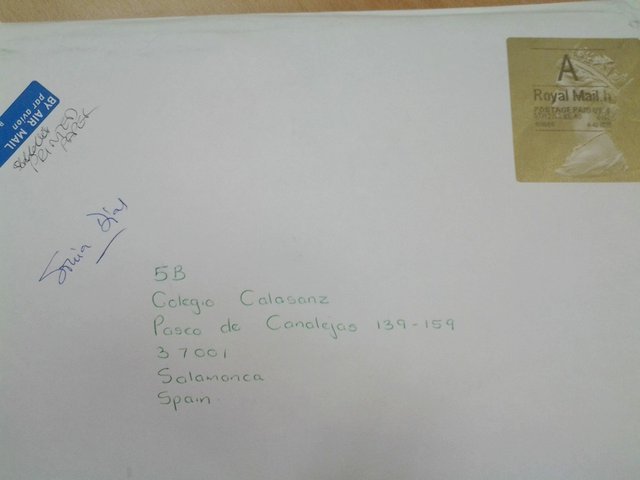 A
Royal Mail
POSTAGE PAID UK
BY AIR MAIL
par avion
PRINTED
PAPER
Sonia Díaz
5B
Colegio Calasanz
Paseo de Canalejas 139-159
37001
Salamanca
Spain